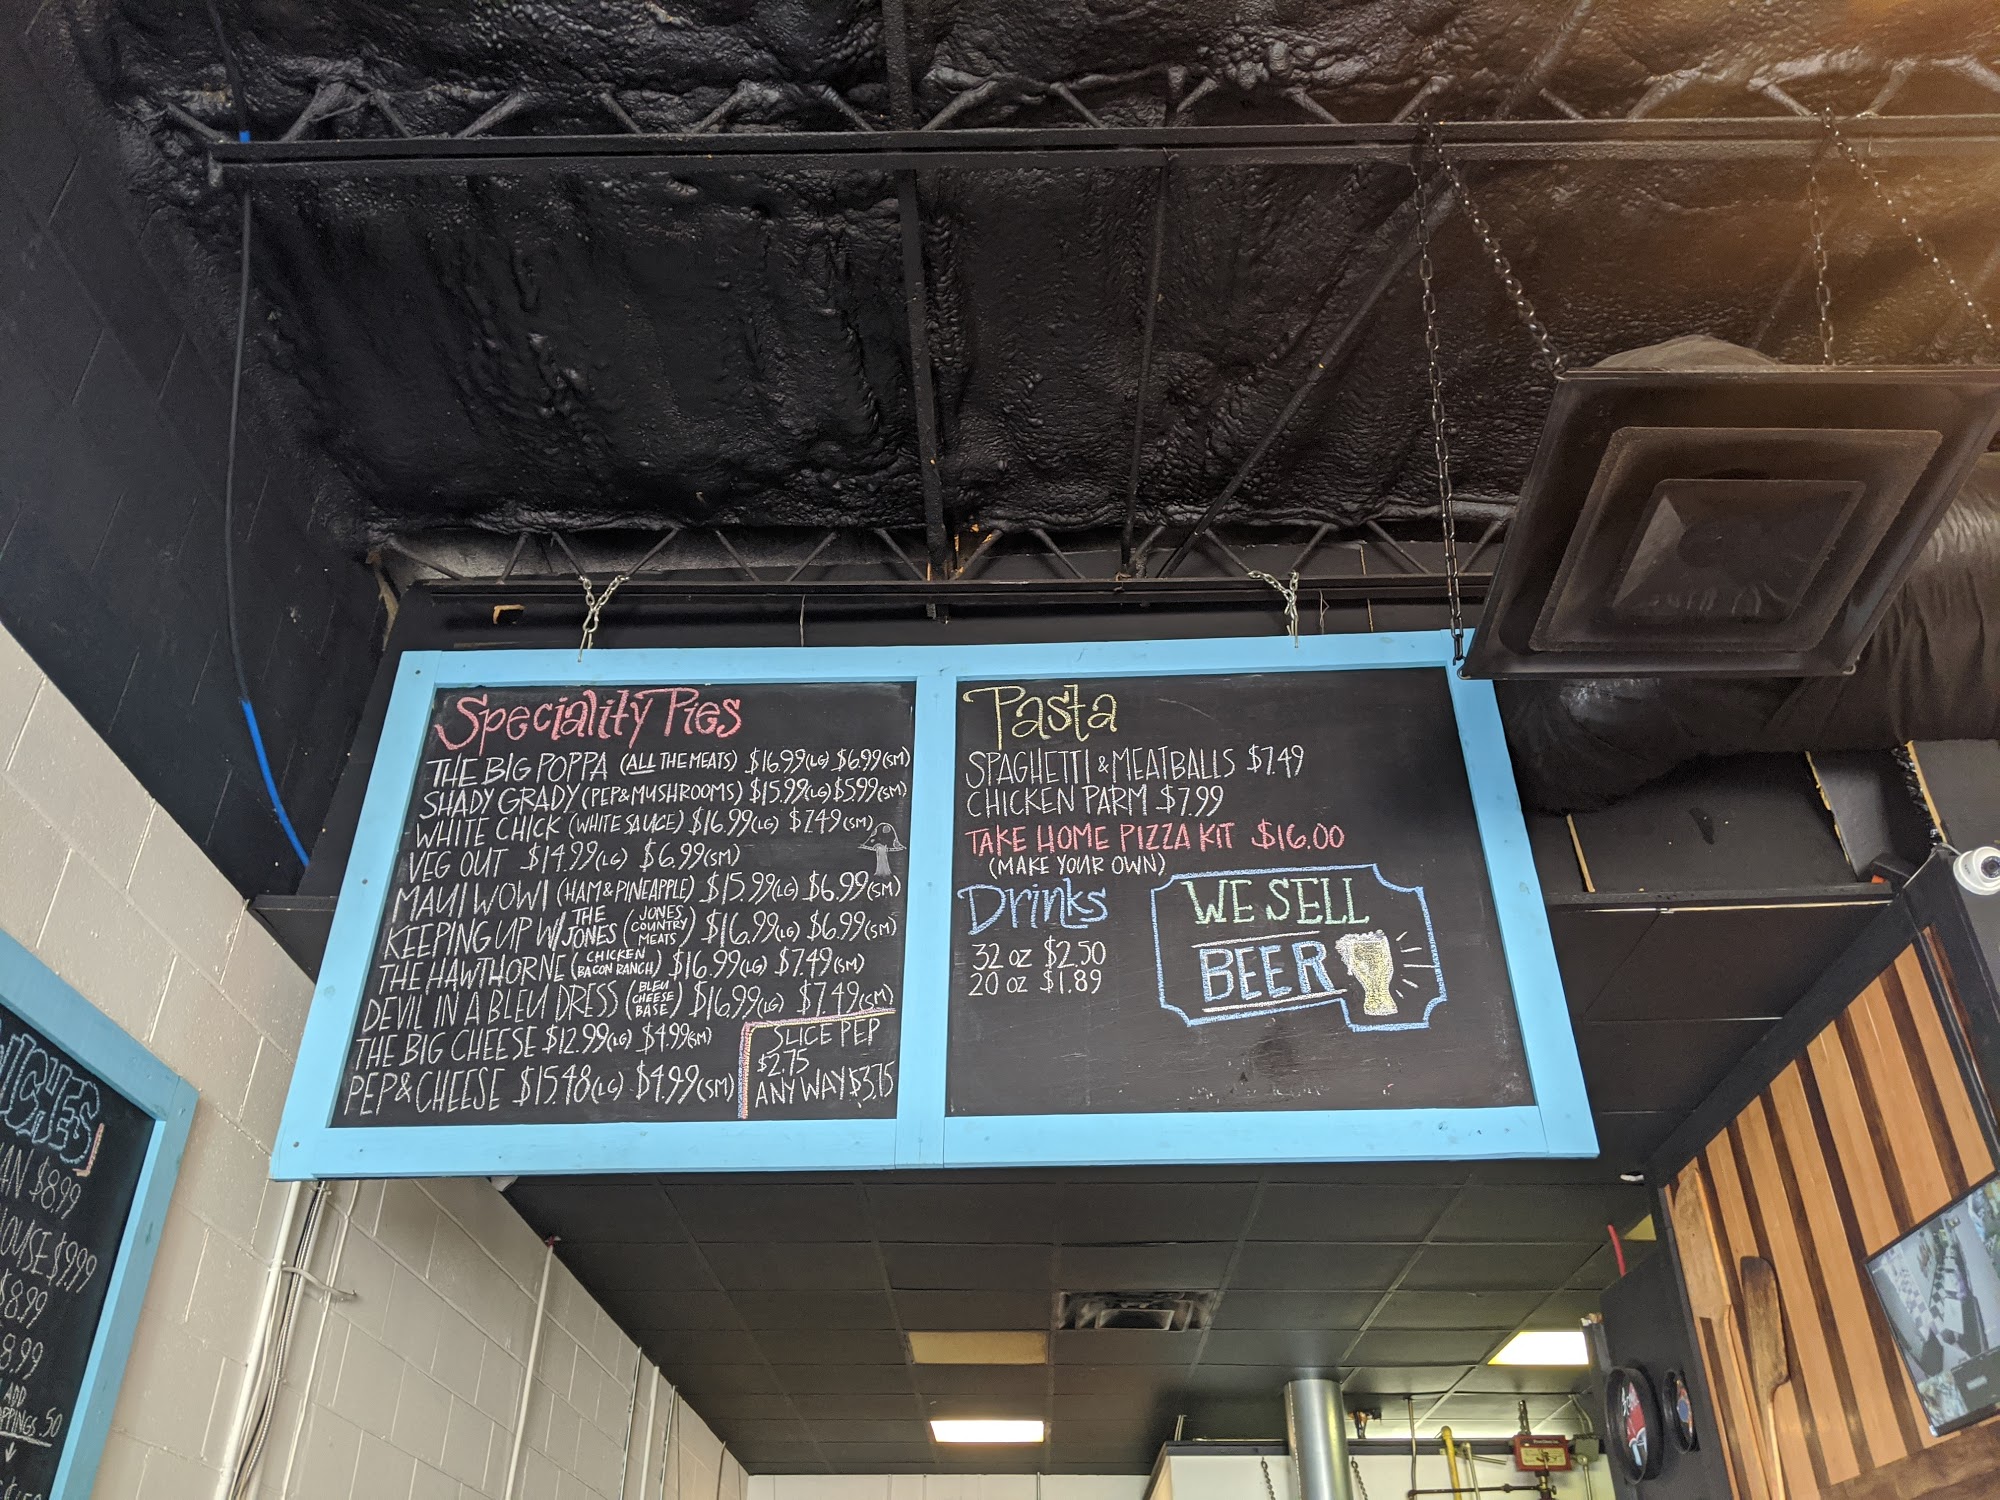 Speciality Pies
THE BIG POPPA (ALL THE MEATS) $16.99(LG) $6.99(SM)
SHADY GRADY (PEP & MUSHROOMS) $15.99(LG) $5.99(SM)
WHITE CHICK (WHITE SAUCE) $16.99(LG) $7.49(SM)
VEG OUT $14.99(LG) $6.99(SM)
MAUI WOWI (HAM & PINEAPPLE) $15.99(LG) $6.99(SM)
KEEPING UP W/ THE JONES (JONES COUNTRY MEATS) $16.99(LG) $6.99(SM)
THE HAWTHORNE (CHICKEN BACON RANCH) $16.99(LG) $7.49(SM)
DEVIL IN A BLEU DRESS (BLEU CHEESE BASE) $16.99(LG) $7.49(SM)
THE BIG CHEESE $12.99(LG) $4.99(SM)
PEP & CHEESE $15.48(LG) $4.99(SM)
SLICE PEP
$2.75
ANY WAY $3.75
Pasta
SPAGHETTI & MEATBALLS $7.49
CHICKEN PARM $7.99
TAKE HOME PIZZA KIT $16.00
(MAKE YOUR OWN)
Drinks
32 OZ $2.50
20 OZ $1.89
WE SELL
BEER
$8.99
$9.99
$8.99
8.99
ADD
.50